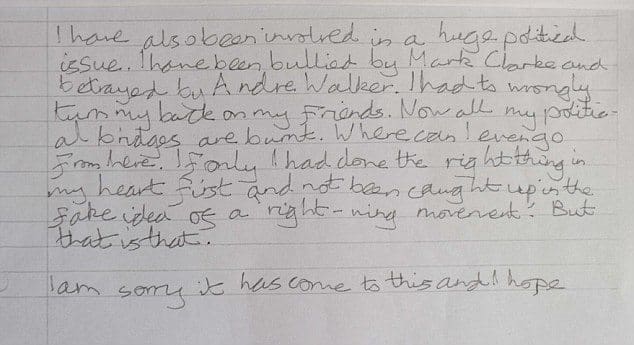 I have also been involved in a huge political
issue. I have been bullied by Mark Clarke and
betrayed by Andre Walker. I had to wrongly
turn my back on my friends. Now all my politic-
al bridges are burnt. Where can I even go
from here. If only I had done the right thing in
my heart first and not been caught up in the
fake idea of a right-wing movement. But
that is that.
I am sorry it has come to this and I hope